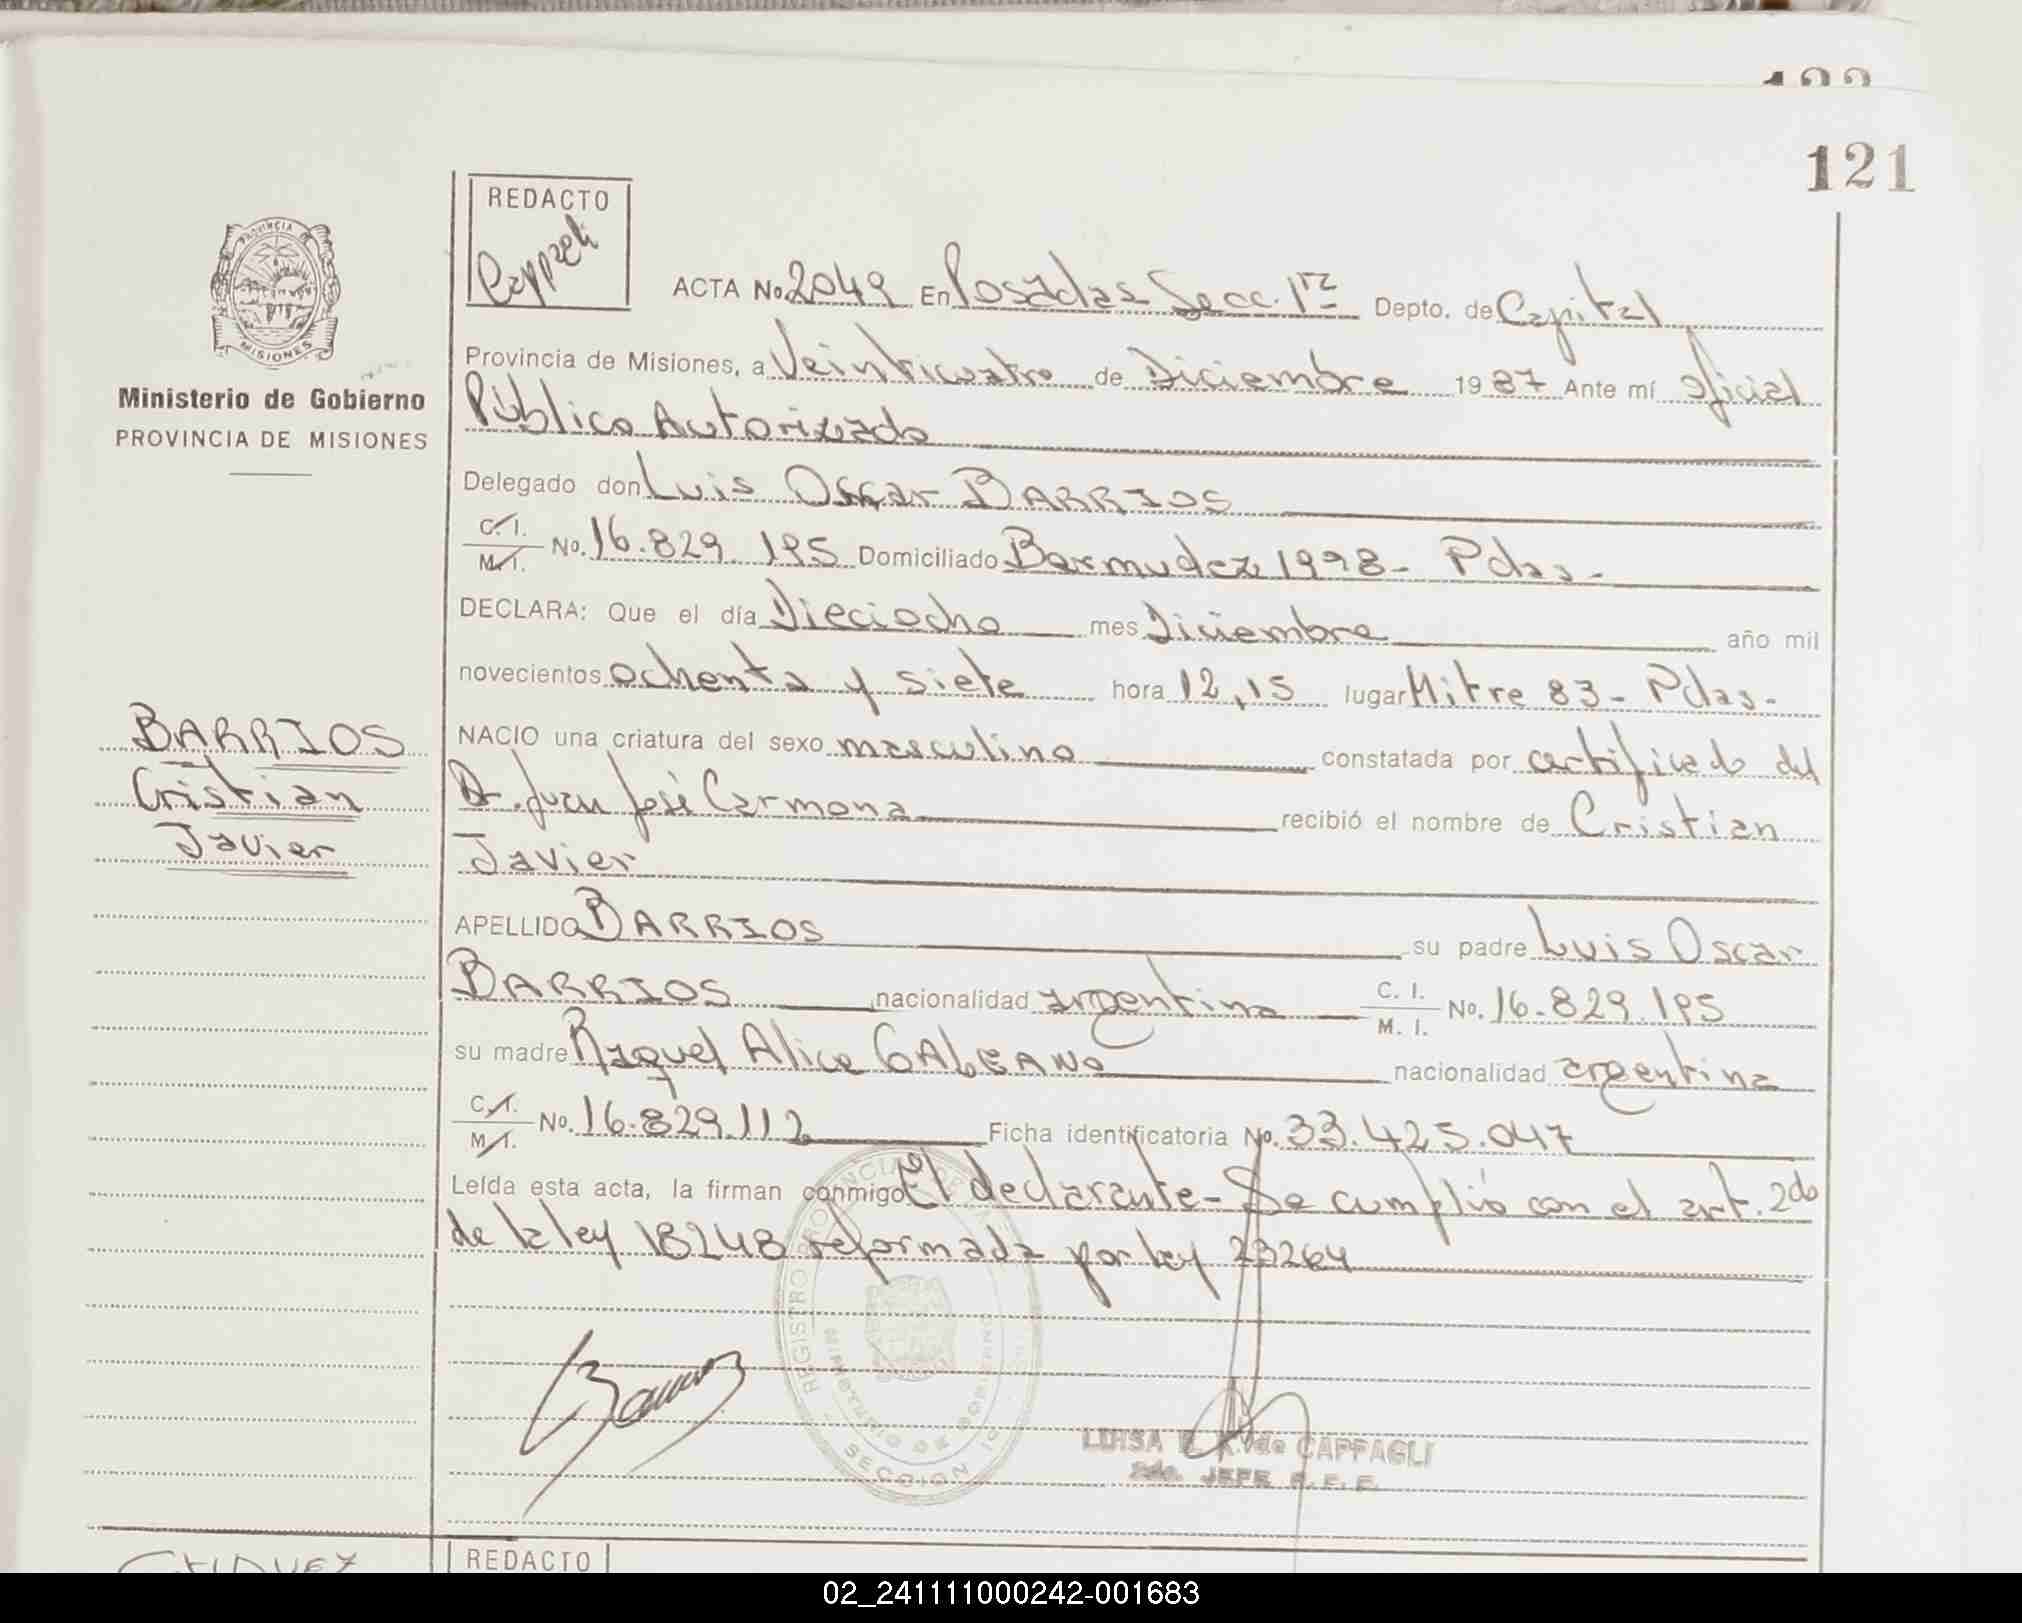 121
REDACTO
Cappagli
PROVINCIA
MISIONES
Ministerio de Gobierno
PROVINCIA DE MISIONES
ACTA No. 2049 En Posadas Secc. 1ra Depto. de Capital
Provincia de Misiones, a Veinticuatro de Diciembre 1987 Ante mí oficial
Público Autorizado
Delegado don Luis Oscar BARRIOS
C.I. / M.I. No. 16.829.195 Domiciliado Bermudez 1998 - Pdas -
DECLARA: Que el día Dieciocho mes Diciembre año mil
novecientos ochenta y siete hora 12,15 lugar Mitre 83 - Pdas -
BARRIOS
Cristian
Javier
NACIO una criatura del sexo masculino constatada por certificado del
Dr. Juan José Carmona recibió el nombre de Cristian
Javier
APELLIDO BARRIOS su padre Luis Oscar
BARRIOS nacionalidad argentina C. I. / M. I. No. 16.829.195
su madre Raquel Alice GALEANO nacionalidad argentina
C.I. / M.I. No. 16.829.112 Ficha identificatoria No. 33.425.047
Leída esta acta, la firman conmigo El declarante - Se cumplió con el art. 2do
de la ley 18248 reformada por ley 23264
Barrios
REGISTRO PROVINCIAL
MINISTERIO DE GOBIERNO
SECCION
LUISA vda CAPPAGLI
2do. JEFE
REDACTO
02_241111000242-001683